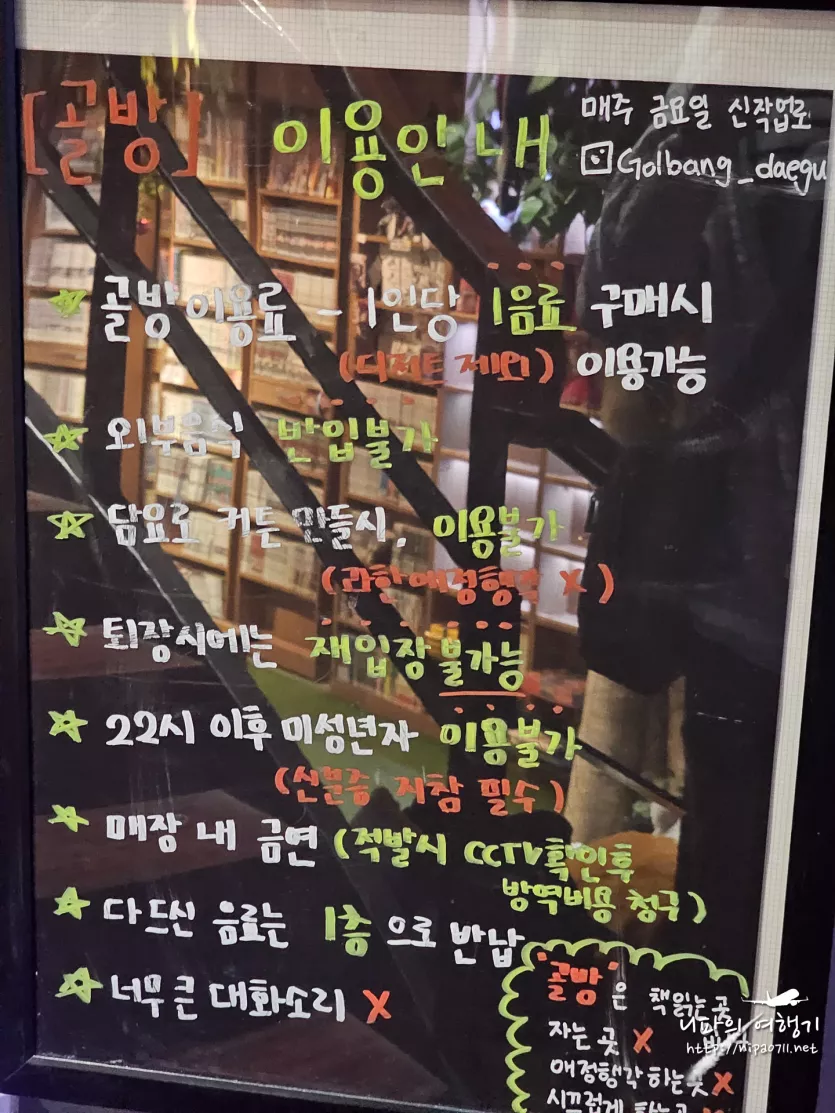 [골방] 이용안내
매주 금요일 신작업로
Golbang_daegu
골방이용료 - 1인당 1음료 구매시
(디저트 제외) 이용가능
외부음식 반입불가
담요로 커튼 만들시, 이용불가
(과한애정행각 X)
퇴장시에는 재입장 불가능
22시 이후 미성년자 이용불가
(신분증 지참 필수)
매장 내 금연 (적발시 CCTV확인후
방역비용 청구)
다 드신 음료는 1층 으로 반납
너무 큰 대화소리 X
"골방"은 책읽는 곳
자는 곳 X
애정행각 하는곳 X
시끄럽게 하는곳
니파의 여행기
http://nipao711.net